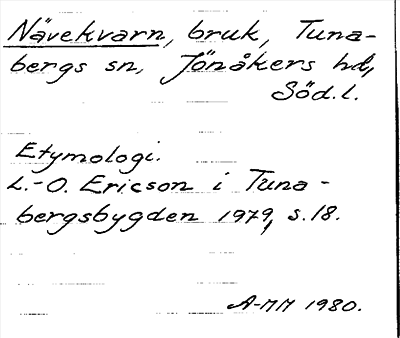 Nävekvarn, bruk, Tuna-
bergs sn, Jönåkers hd,
Söd.l.
Etymologi.
L.-O. Ericson i Tuna-
bergsbygden 1979, s.18.
A-MM 1980.